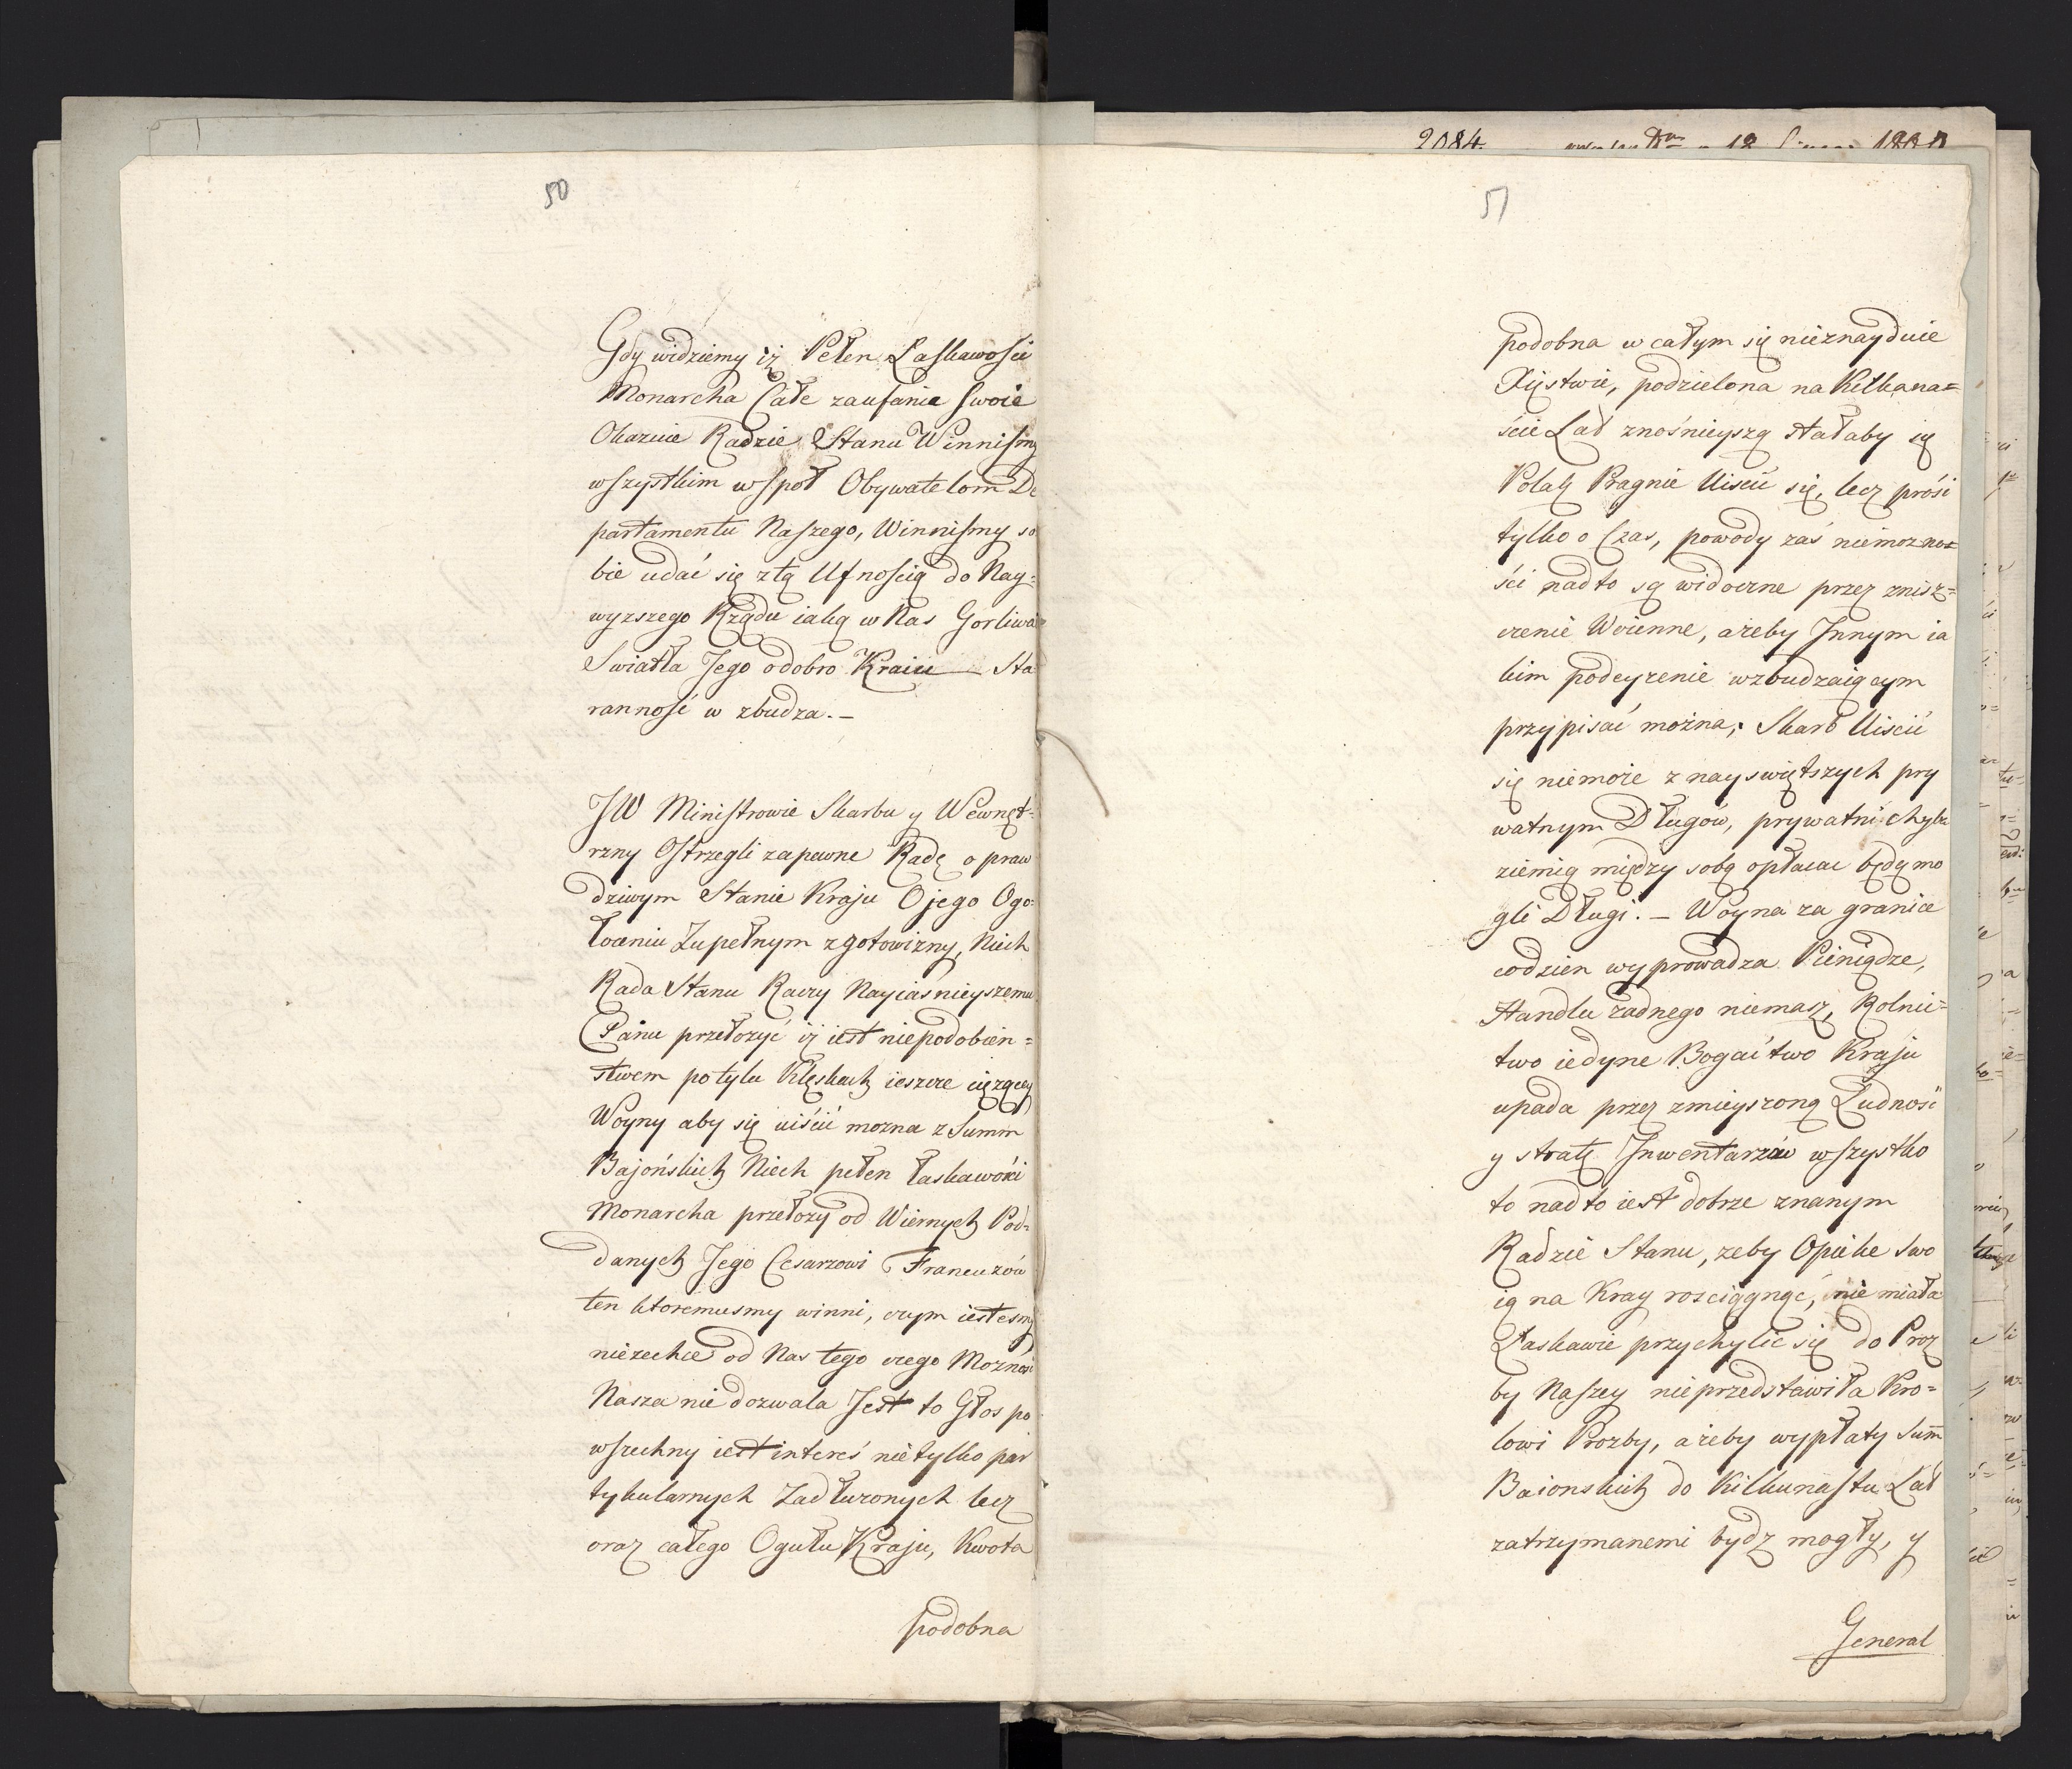 50
Gdy widziemy iż Pełen Łaskawości
Monarcha Całe zaufanie swoie
Okazuie Radzie Stanu Winnismy
wszystkim wspoł Obywatelom De
partamentu Naszego, Winnismy so
bie udać się z tą Ufnością do Nay=
wyzszego Rządu iaką w Nas Gorliwa
Swiatła Jego o dobro Kraiu Sta
ranność w zbudza. –
JW Ministrowie Skarbu y Wewnęt=
rzny Ostrzegli zapewne Radę o praw
dziwym Stanie Kraju O jego Ogo=
łoceniu Zupełnym z gotowizny, Niech
Rada Stanu Raczy Nayiasnieyszemu
Panu przełozyć iż iest niepodobien=
stwem po tylu Klęskach ieszcze ciężącey
Woyny aby się uiścić mozna z Summ
Bajońskich Niech pełen łaskawości
Monarcha przełozy od Wiernych Pod=
danych Jego Cesarzowi Francuzów
ten ktoremusmy winni, czym iestesmy
niezechce od Nas tego czego Moznosc
Nasza nie dozwala Jest to Głos po
wszechny iest interes nie tylko par
tykularnych Zadłuzonych lecz
oraz całego Ogułu Kraju, Kwota
podobna
2084.
51
podobna w całym się nieznayduie
Xięstwie, podzielona na Kilkana=
ście Lat znośnieyszą stałaby się
Polak Pragnie Uiscić się, lecz prósi
tylko o Czas, powody zaś niemozno=
ści nadto są widoczne przez znisz=
czenie Woienne, ażeby Innym ia
kim podeyzenie wzbudzaiącym
przypisać można; Skarb Uiscić
się niemoże z nayswiętszych pry
watnym Długów, prywatni chyba
ziemią między sobą opłacac będą mo
gli Długi. – Woyna za granice
codzien wyprowadza Pieniądze,
Handlu żadnego niemasz, Rolnic=
two iedyne Bogactwo Kraju
upada przez zmieyszoną Ludność
y stratę Inwentarzów wszystko
to nadto iest dobrze znanym
Radzie Stanu, zeby Opieke swo
ią na Kray rosciągnąć, nie miała
Łaskawie przychylic się do Proz
by Naszey nieprzedstawiła Kro=
lowi Prozby, ażeby wypłaty Sum̄
Baionskich do Kilkunastu Lat
zatrzymanemi bydz mogły, y
General